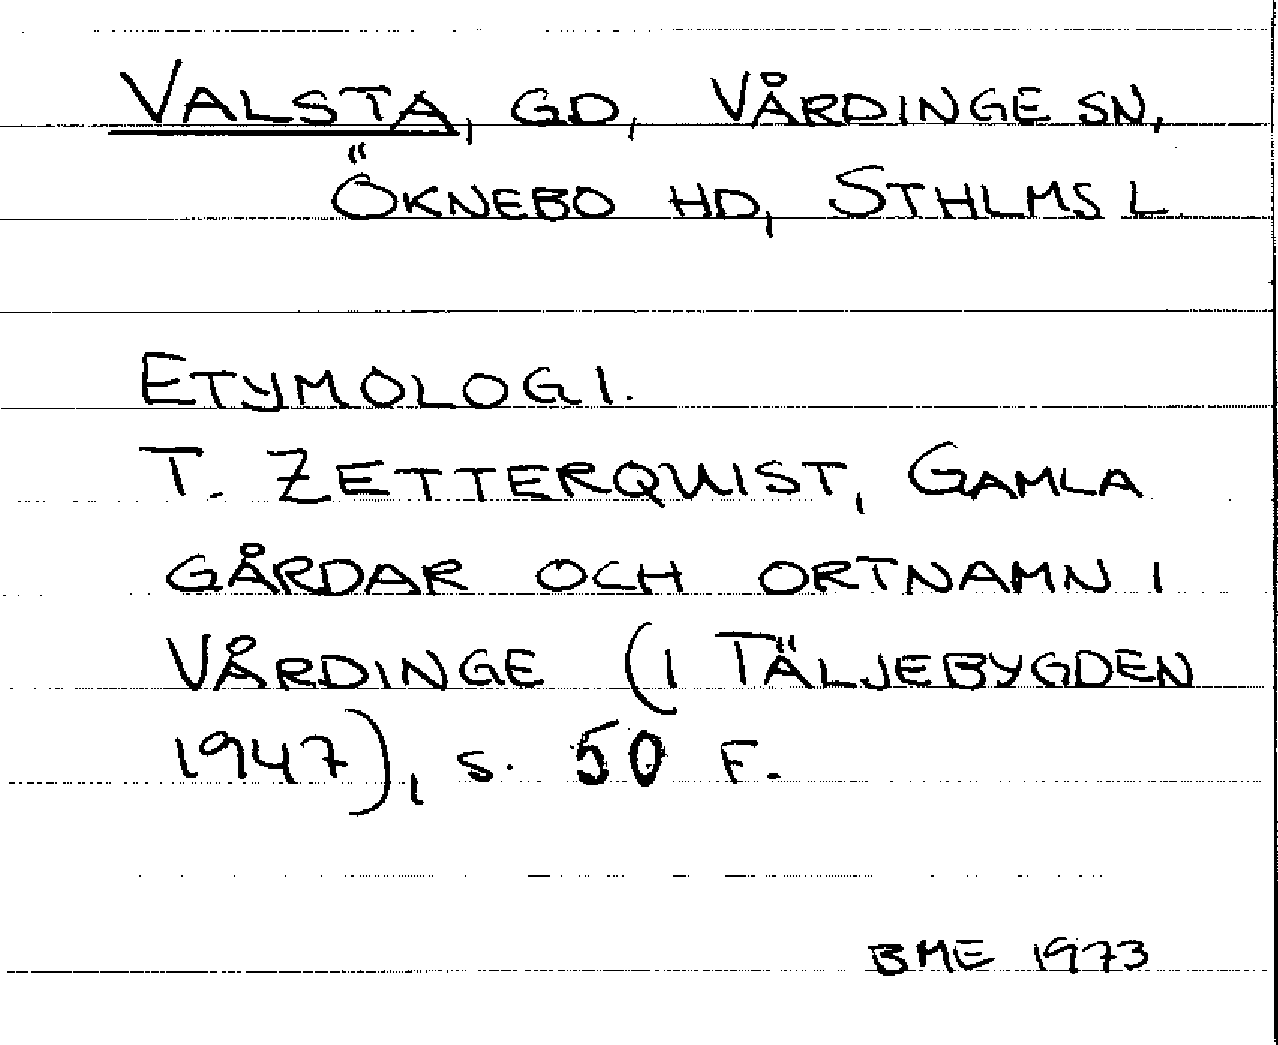 VALSTA, GD, VÅRDINGE SN,
ÖKNEBO HD, STHLMS L.
ETYMOLOGI.
T. ZETTERQUIST, GAMLA
GÅRDAR OCH ORTNAMN I
VÅRDINGE (I TÄLJEBYGDEN
1947), S. 50 F.
BME 1973